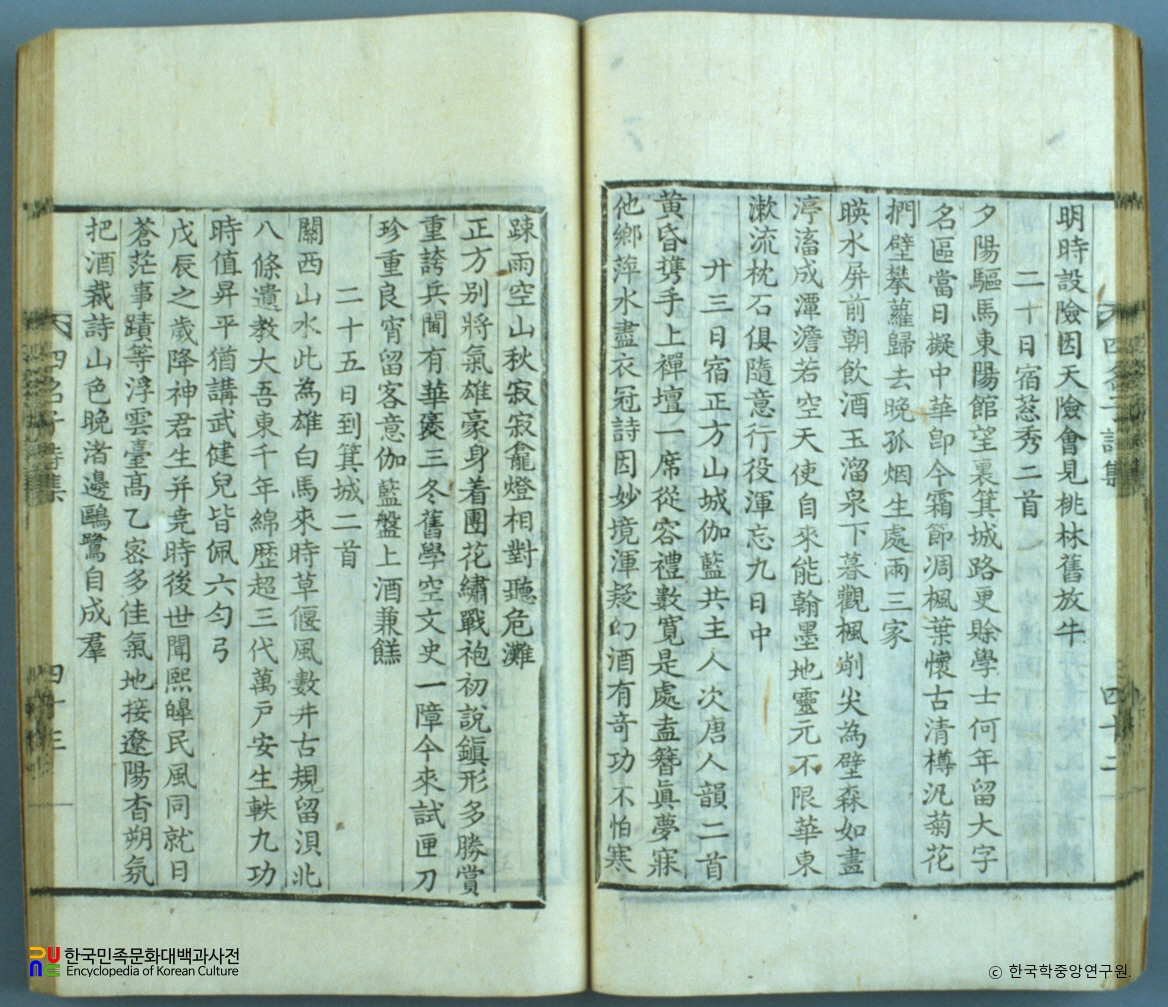 明時設險因天險會見桃林舊放牛
二十日宿葱秀二首
夕陽驅馬東陽館望裏箕城路更賖學士何年留大字
名區當日擬中華卽今霜節凋楓葉懷古清樽汎菊花
捫壁攀蘿歸去晚孤烟生處兩三家
暎水屏前朝飮酒玉溜泉下暮觀楓崱尖為壁森如畫
渟滀成潭澹若空天使自來能翰墨地靈元不限華東
漱流枕石俱隨意行役渾忘九日中
廾三日宿正方山城伽藍共主人次唐人韻二首
黃昏携手上禪壇一席從容禮數寬是處盍簪眞夢寐
他鄉萍水盡衣冠詩因妙境渾疑幻酒有奇功不怕寒
疎雨空山秋寂寂龕燈相對聽危灘
正方別將氣雄豪身着團花繡戰袍初說鎭形多勝賞
重誇兵閫有華褒三冬舊學空文史一障今來試匣刀
珍重良宵留客意伽藍盤上酒兼餻
二十五日到箕城二首
關西山水此為雄白馬來時草偃風數井古規留浿北
八條遺敎大吾東千年綿歴超三代萬戶安生軼九功
時值昇平猶講武健兒皆佩六勻弓
戊辰之歲降神君生并堯時後世聞熙皥民風同就日
蒼茫事蹟等浮雲臺高乙密多佳氣地接遼陽杳朔氛
把酒裁詩山色晚渚邊鷗鷺自成羣
四名子詩集
四十三
한국민족문화대백과사전
Encyclopedia of Korean Culture
ⓒ 한국학중앙연구원.